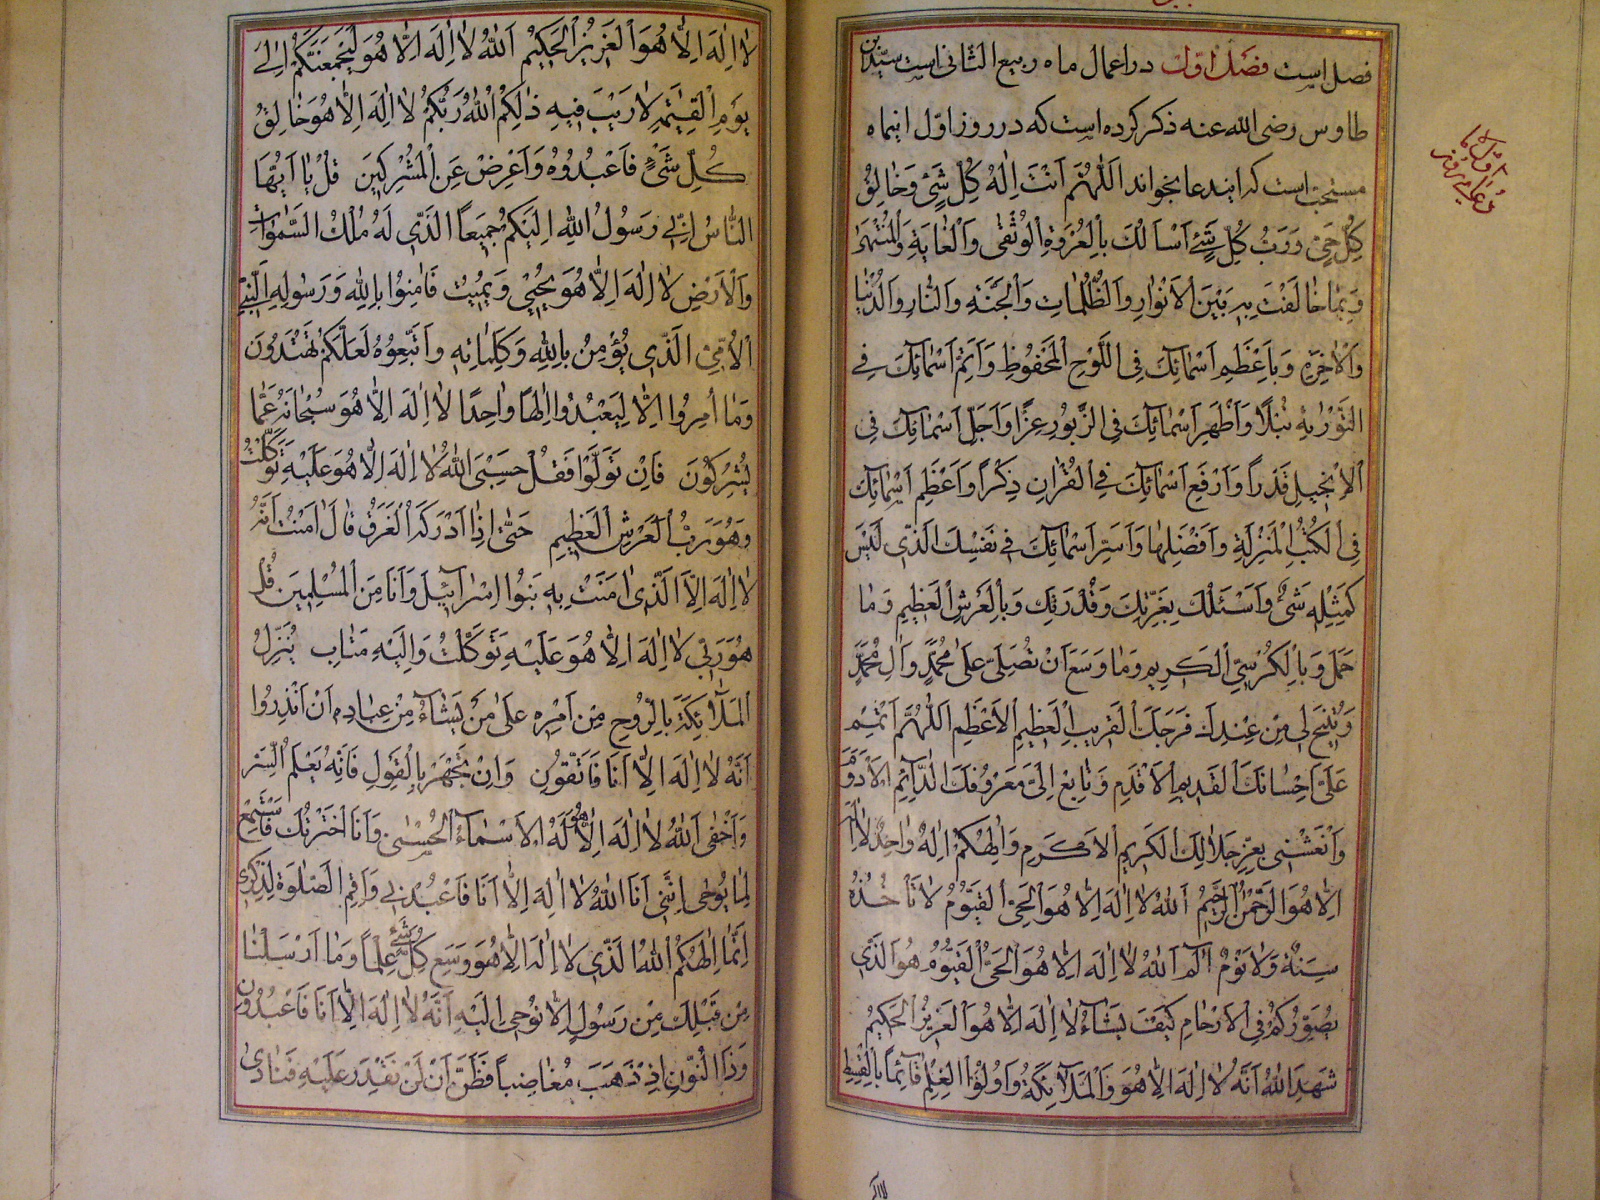 فصل است فصل اوّل در اعمال ماه ربیع الثانی است سیّد بن
طاوس رضی الله عنه ذکر کرده است که در روز اوّل اینماه
مستحب است که ایندعا بخواند اَللّٰهُمَّ اَنْتَ اِلٰهُ كُلِّ شَیْءٍ وَخٰالِقُ
كُلِّ حَيٍّ وَرَبُّ كُلِّ شَيْءٍ اَسْاَلُكَ بِالْعُرْوَةِ الْوُثْقٰى وَالْغٰايَةِ وَالْمُنْتَهٰى
وَبِمٰا خٰالَفْتَ بِهِ بَيْنَ الْاَنْوٰارِ وَالظُّلُمٰاتِ وَالْجَنَّةِ وَالنّٰارِ وَالدُّنْيٰا
وَالْاٰخِرَةِ وَبِاَعْظَمِ اَسْمٰائِكَ فِى اللَّوْحِ الْمَحْفُوظِ وَاَتَمِّ اَسْمٰائِكَ فِي
التَّوْرٰيةِ نُبْلاً وَاَظْهَرِ اَسْمٰائِكَ فِى الزَّبُورِ عِزًّا وَاَجَلِّ اَسْمٰائِكَ فِى
الْاِنْجِيلِ قَدْراً وَاَرْفَعِ اَسْمٰائِكَ فِى الْقُرْاٰنِ ذِكْراً وَاَعْظَمِ اَسْمٰائِكَ
فِى الْكُتُبِ الْمُنْزَلَةِ وَاَفْضَلِهٰا وَاَسَرِّ اَسْمٰائِكَ فِى نَفْسِكَ الَّذِى لَيْسَ
كَمِثْلِهِ شَىْءٌ وَاَسْئَلُكَ بِعِزَّتِكَ وَقُدْرَتِكَ وَبِالْعَرْشِ الْعَظِيمِ وَمٰا
حَمَلَ وَبِالْكُرْسِيِّ الْكَرِيمِ وَمٰا وَسِعَ اَنْ تُصَلِّىَ عَلٰى مُحَمَّدٍ وَاٰلِ مُحَمَّدٍ
وَتُبِيحَ لِى مِنْ عِنْدِكَ فَرَجَكَ الْقَرِيبَ الْعَظِيمَ الْاَعْظَمَ اَللّٰهُمَّ اَتْمِمْ
عَلَىَّ اِحْسٰانَكَ الْقَدِيمَ الْاَقْدَمَ وَتٰابِعْ اِلَىَّ مَعْرُوفَكَ الدّٰائِمَ الْاَدْوَمَ
وَاَنْعِشْنِى بِعِزِّ جَلٰالِكَ الْكَرِيمِ الْاَكْرَمِ وَاِلٰهُكُمْ اِلٰهٌ وٰاحِدٌ لٰا اِلٰهَ
اِلّٰا هُوَ الرَّحْمٰنُ الرَّحِيمُ اَللّٰهُ لٰا اِلٰهَ اِلّٰا هُوَ الْحَىُّ الْقَيُّومُ لٰا تَأْخُذُهُ
سِنَةٌ وَلٰا نَوْمٌ الٓمٓ اَللّٰهُ لٰا اِلٰهَ اِلّٰا هُوَ الْحَىُّ الْقَيُّومُ هُوَ الَّذِى
يُصَوِّرُكُمْ فِى الْاَرْحٰامِ كَيْفَ يَشٰآءُ لٰا اِلٰهَ اِلّٰا هُوَ الْعَزِيزُ الْحَكِيمُ
شَهِدَ اللّٰهُ اَنَّهُ لٰا اِلٰهَ اِلّٰا هُوَ وَالْمَلٰٓائِكَةُ وَاُولُوا الْعِلْمِ قٰآئِماً بِالْقِسْطِ
لٰا اِلٰهَ اِلّٰا هُوَ الْعَزِيزُ الْحَكِيمُ اَللّٰهُ لٰا اِلٰهَ اِلّٰا هُوَ لَيَجْمَعَنَّكُمْ اِلٰى
يَوْمِ الْقِيٰمَةِ لٰا رَيْبَ فِيهِ ذٰلِكُمُ اللّٰهُ رَبُّكُمْ لٰا اِلٰهَ اِلّٰا هُوَ خٰالِقُ
كُلِّ شَىْءٍ فَاعْبُدُوهُ وَاَعْرِضْ عَنِ الْمُشْرِكِينَ قُلْ يٰا اَيُّهَا
النّٰاسُ اِنِّى رَسُولُ اللّٰهِ اِلَيْكُمْ جَمِيعاً الَّذِى لَهُ مُلْكُ السَّمٰوٰاتِ
وَالْاَرْضِ لٰا اِلٰهَ اِلّٰا هُوَ يُحْيِى وَيُمِيتُ فَاٰمِنُوا بِاللّٰهِ وَرَسُولِهِ النَّبِىِّ
الْاُمِّىِّ الَّذِى يُؤْمِنُ بِاللّٰهِ وَكَلِمٰاتِهِ وَاتَّبِعُوهُ لَعَلَّكُمْ تَهْتَدُونَ
وَمٰا اُمِرُوا اِلّٰا لِيَعْبُدُوا اِلٰهاً وٰاحِدًا لٰا اِلٰهَ اِلّٰا هُوَ سُبْحٰانَهُ عَمّٰا
يُشْرِكُونَ فَاِنْ تَوَلَّوْا فَقُلْ حَسْبِىَ اللّٰهُ لٰا اِلٰهَ اِلّٰا هُوَ عَلَيْهِ تَوَكَّلْتُ
وَهُوَ رَبُّ الْعَرْشِ الْعَظِيمِ حَتّٰى اِذٰا اَدْرَكَهُ الْغَرَقُ قٰالَ اٰمَنْتُ اَنَّهُ
لٰا اِلٰهَ اِلَّا الَّذِى اٰمَنَتْ بِهِ بَنُوا اِسْرٰٓائِيلَ وَاَنَا مِنَ الْمُسْلِمِينَ قُلْ
هُوَ رَبِّى لٰا اِلٰهَ اِلّٰا هُوَ عَلَيْهِ تَوَكَّلْتُ وَاِلَيْهِ مَتٰابِ يُنَزِّلُ
الْمَلٰٓائِكَةَ بِالرُّوحِ مِنْ اَمْرِهِ عَلٰى مَنْ يَشٰآءُ مِنْ عِبٰادِهِ اَنْ اَنْذِرُوا
اَنَّهُ لٰا اِلٰهَ اِلّٰا اَنَا فَاتَّقُونِ وَاِنْ تَجْهَرْ بِالْقَوْلِ فَاِنَّهُ يَعْلَمُ السِّرَّ
وَاَخْفٰى اَللّٰهُ لٰا اِلٰهَ اِلّٰا هُوَ لَهُ الْاَسْمٰاءُ الْحُسْنٰى وَاَنَا اخْتَرْتُكَ فَاسْتَمِعْ
لِمٰا يُوحٰى اِنَّنِى اَنَا اللّٰهُ لٰا اِلٰهَ اِلّٰا اَنَا فَاعْبُدْنِى وَاَقِمِ الصَّلٰوةَ لِذِكْرِى
اِنَّمٰا اِلٰهُكُمُ اللّٰهُ الَّذِى لٰا اِلٰهَ اِلّٰا هُوَ وَسِعَ كُلَّ شَىْءٍ عِلْماً وَمٰا اَرْسَلْنٰا
مِنْ قَبْلِكَ مِنْ رَسُولٍ اِلّٰا نُوحِى اِلَيْهِ اَنَّهُ لٰا اِلٰهَ اِلّٰا اَنَا فَاعْبُدُونِ
وَذَا النُّونِ اِذْ ذَهَبَ مُغٰاضِباً فَظَنَّ اَنْ لَنْ نَقْدِرَ عَلَيْهِ فَنٰادٰى